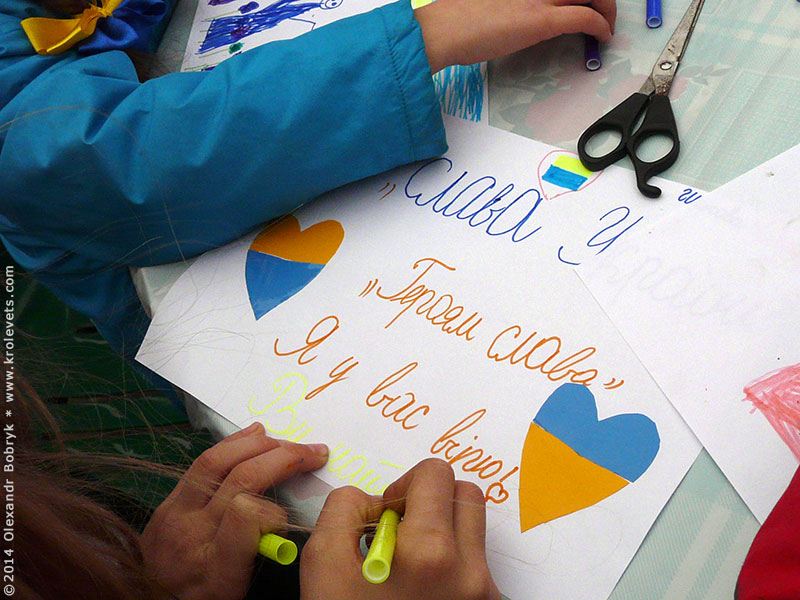 „Слава У
„Героям слава”
Я у вас вірю!
Ви
©2014 Olexandr Bobryk * www.krolevets.com